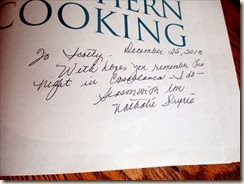 HERN
COOKING
To Scottey - December 25, 2010
With hopes you remember the
night in Casablanca - I do -
in
Nathalie Dupree